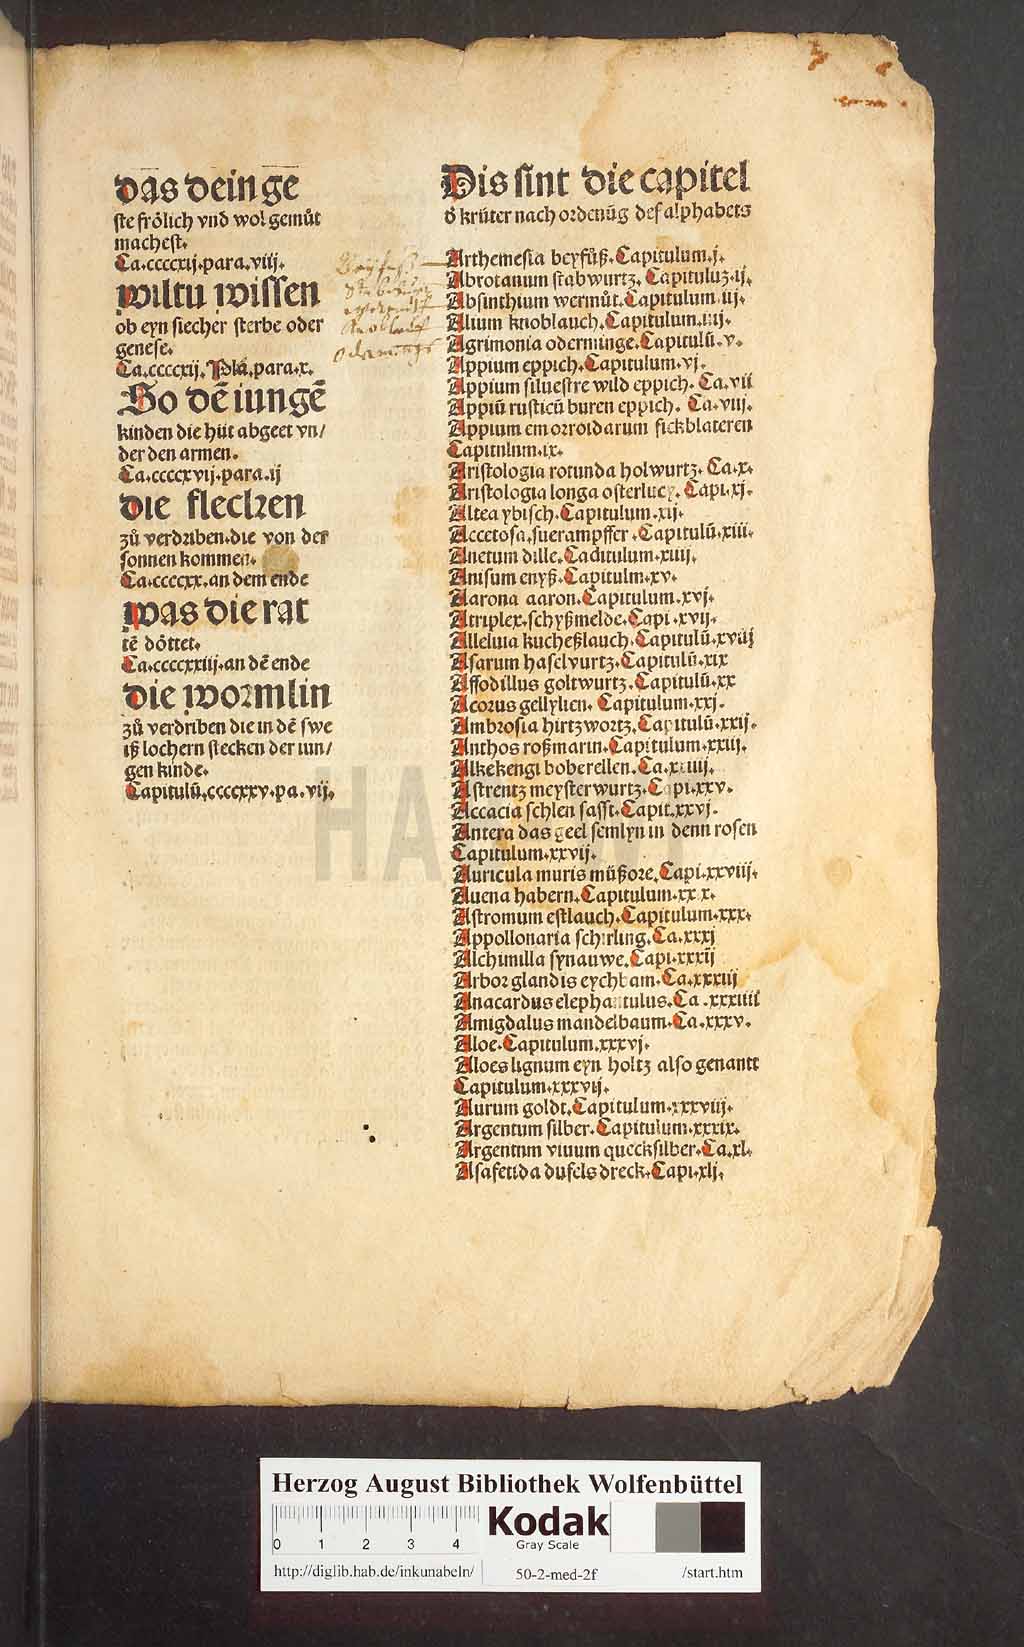 das dein ge
ste frölich vnd wol gemůt
machest.
Ca.ccccxij.para.viij.
wiltu wissen
ob eyn siecher sterbe oder
genese.
Ca.ccccxij. Pla.para.x.
So dē iungē
kinden die hüt abgeet vn/
der den armen.
Ca.ccccxvij.para.ij
die flecken
zů verdriben.die von der
sonnen kommen.
Ca.ccccxx.an dem ende
was die rat
tē döttet.
Ca.ccccxxiij.an dē ende
die wormlin
zů verdriben die in dē swe
iß lochern stecken der iun/
gen kinde.
Capitulū.ccccxxv.pa.vij.
Beyfuß
Knoblauch
odermynge
Dis sint die capitel
d̓ krüter nach ordenūg des alphabets
Arthemesia beyfůß.Capitulum.j.
Abrotanum stabwurtz.Capituluz.ij.
Absinthium wermůt.Capitulum.iij.
Alium knoblauch.Capitulum.iiij.
Agrimonia oderminge.Capitulū.v.
Appium eppich.Capitulum.vj.
Appium siluestre wild eppich. Ca.vij
Appiū rusticū buren eppich. Ca.viij.
Appium emorroidarum fickblateren
Capitnlnm.ix.
Aristologia rotunda holwurtz. Ca.x.
Aristologia longa osterlucy. Capi.xj.
Altea ybisch.Capitulum.xij.
Accetosa.suerampffer.Capitulū.xiij.
Anetum dille.Caditulum.xiiij.
Anisum enyß.Capitulm.xv.
Aarona aaron.Capitulum.xvj.
Atriplex.schyßmelde.Capi.xvij.
Alleluia kucheßlauch.Capitulū.xviij
Asarum haselvurtz.Capitulū.xix
Affodillus goltwurtz.Capitulū.xx
Acorus gellylien. Capitulum.xxj.
Ambrosia hirtzwortz.Capitulū.xxij.
Anthos roßmarin.Capitulum.xxiij.
Alkekengi boberellen.Ca.xxiiij.
Astrentz meysterwurtz.Capi.xxv.
Accacia schlen safft.Capit.xxvj.
Antera das geel semlyn in denn rosen
Capitulum.xxvij.
Auricula muris müßore.Capi.xxviij.
Auena habern.Capitulum.xxix.
Astromum estlauch.Capitulum.xxx.
Appollonaria schirling.Ca.xxxj
Alchimilla synauwe.Capi.xxxij
Arbor glandis eychbam.Ca.xxxiij
Anacardus elephantulus.Ca.xxxiiij
Amigdalus mandelbaum.Ca.xxxv.
Aloe.Capitulum.xxxvj.
Aloes lignum eyn holtz also genantt
Capitulum.xxxvij.
Aurum goldt.Capitulum.xxxviij.
Argentum silber.Capitulum.xxxix.
Argentnm viuum quecksilber.Ca.xl.
Asafetida dufels dreck.Capi.xlj.
HAB
Herzog August Bibliothek Wolfenbüttel
0 1 2 3 4
Kodak
Gray Scale
http://diglib.hab.de/inkunabeln/
50-2-med-2f
/start.htm